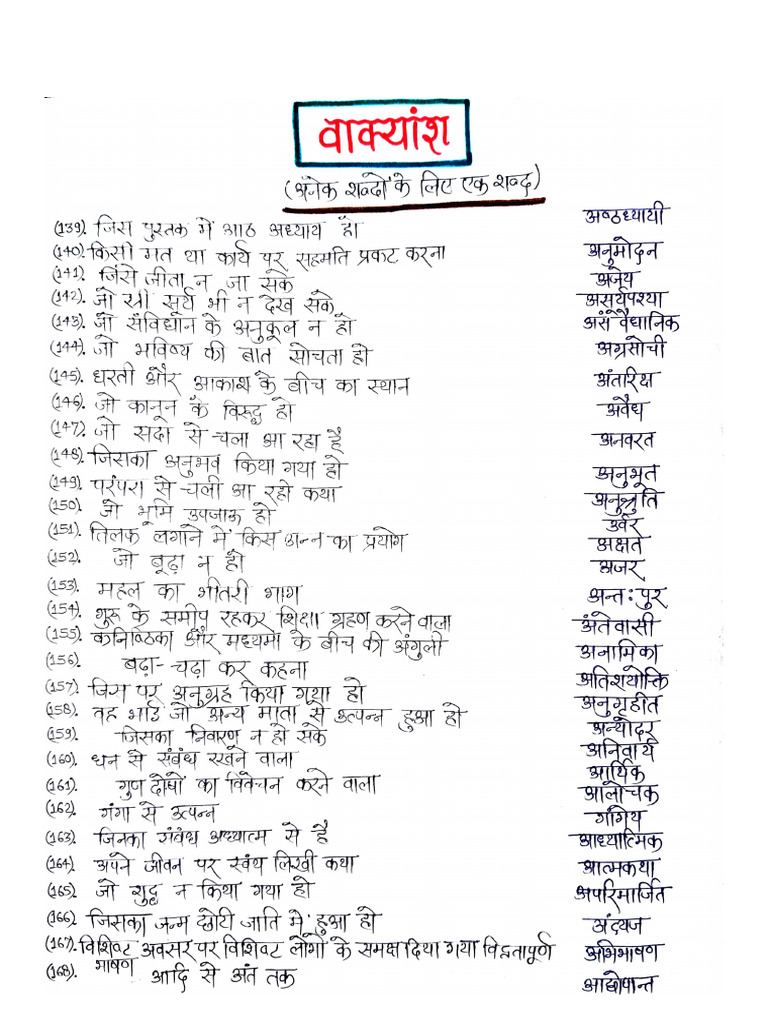 वाक्यांश
(अनेक शब्दों के लिए एक शब्द)
(139). जिस पुस्तक में आठ अध्याय हों अष्ठध्यायी
(140). किसी मत था कार्य पर सहमति प्रकट करना अनुमोदन
(141). जिसे जीता न जा सके अजेय
(142). जो स्त्री सूर्य भी न देख सके असूर्यपश्या
(143). जो संविधान के अनुकूल न हो असंवैधानिक
(144). जो भविष्य की बात सोचता हो अग्रसोची
(145). धरती और आकाश के बीच का स्थान अंतरिक्ष
(146). जो कानून के विरुद्ध हो अवैध
(147). जो सदा से चला आ रहा है अनवरत
(148). जिसका अनुभव किया गया हो अनुभूत
(149). परंपरा से चली आ रही कथा अनुश्रुति
(150). जो भूमि उपजाऊ हो उर्वर
(151). तिलक लगाने में किस अन्न का प्रयोग अक्षत
(152). जो बूढ़ा न हो अजर
(153). महल का भीतरी भाग अन्त:पुर
(154). गुरु के समीप रहकर शिक्षा ग्रहण करने वाला अंतेवासी
(155). कनिष्ठिका और मध्यमा के बीच की अंगुली अनामिका
(156). बढ़ा-चढ़ा कर कहना अतिशयोक्ति
(157). जिस पर अनुग्रह किया गया हो अनुगृहीत
(158). वह भाई जो अन्य माता से उत्पन्न हुआ हो अन्योदर
(159). जिसका निवारण न हो सके अनिवार्य
(160). धन से संबंध रखने वाला आर्थिक
(161). गुण दोषों का विवेचन करने वाला आलोचक
(162). गंगा से उत्पन्न गांगेय
(163). जिनका संबंध अध्यात्म से है आध्यात्मिक
(164). अपने जीवन पर स्वंय लिखी कथा आत्मकथा
(165). जो शुद्ध न किया गया हो अपरिमार्जित
(166). जिसका जन्म छोटी जाति में हुआ हो अंत्यज
(167). विशिष्ट अवसर पर विशिष्ट लोगों के समक्ष दिया गया विद्वतापूर्ण अभिभाषण
भाषण
(168). आदि से अंत तक आद्योपान्त